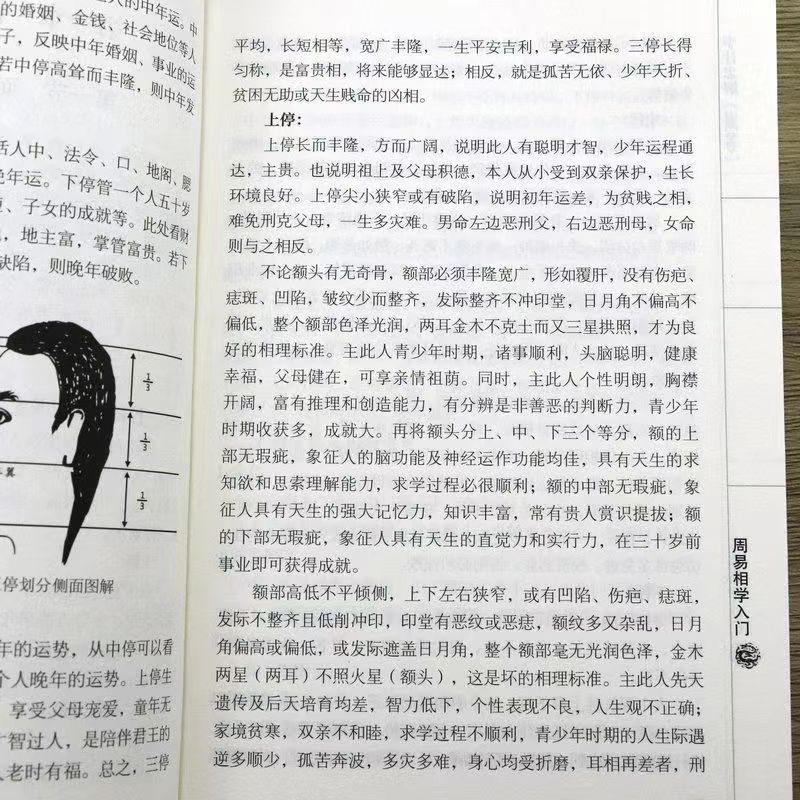 的婚姻、金钱、社会地位等人
子，反映中年婚姻、事业的运
若中停高耸而丰隆，则中年发
括人中、法令、口、地阁、腮
晚年运。下停管一个人五十岁
、子女的成就等。此处看财
，地主富，掌管富贵。若下
缺陷，则晚年破败。
1/3
1/3
1/3
停划分侧面图解
年的运势，从中停可以看
个人晚年的运势。上停生
，享受父母宠爱，童年无
才智过人，是陪伴君王的
人老时有福。总之，三停
平均，长短相等，宽广丰隆，一生平安吉利，享受福禄。三停长得
匀称，是富贵相，将来能够显达；相反，就是孤苦无依、少年夭折、
贫困无助或天生贱命的凶相。
上停：
上停长而丰隆，方而广阔，说明此人有聪明才智，少年运程通
达，主贵。也说明祖上及父母积德，本人从小受到双亲保护，生长
环境良好。上停尖小狭窄或有破陷，说明初年运差，为贫贱之相，
难免刑克父母，一生多灾难。男命左边恶刑父，右边恶刑母，女命
则与之相反。
不论额头有无奇骨，额部必须丰隆宽广，形如覆肝，没有伤疤、
痣斑、凹陷，皱纹少而整齐，发际整齐不冲印堂，日月角不偏高不
偏低，整个额部色泽光润，两耳金木不克土而又三星拱照，才为良
好的相理标准。主此人青少年时期，诸事顺利，头脑聪明，健康
幸福，父母健在，可享亲情祖荫。同时，主此人个性明朗，胸襟
开阔，富有推理和创造能力，有分辨是非善恶的判断力，青少年
时期收获多，成就大。再将额头分上、中、下三个等分，额的上
部无瑕疵，象征人的脑功能及神经运作功能均佳，具有天生的求
知欲和思索理解能力，求学过程必很顺利；额的中部无瑕疵，象
征人具有天生的强大记忆力，知识丰富，常有贵人赏识提拔；额
的下部无瑕疵，象征人具有天生的直觉力和实行力，在三十岁前
事业即可获得成就。
额部高低不平倾侧，上下左右狭窄，或有凹陷、伤疤、痣斑，
发际不整齐且低削冲印，印堂有恶纹或恶痣，额纹多又杂乱，日月
角偏高或偏低，或发际遮盖日月角，整个额部毫无光润色泽，金木
两星（两耳）不照火星（额头），这是坏的相理标准。主此人先天
遗传及后天培育均差，智力低下，个性表现不良，人生观不正确；
家境贫寒，双亲不和睦，求学过程不顺利，青少年时期的人生际遇
逆多顺少，孤苦奔波，多灾多难，身心均受折磨，耳相再差者，刑
周易相学入门